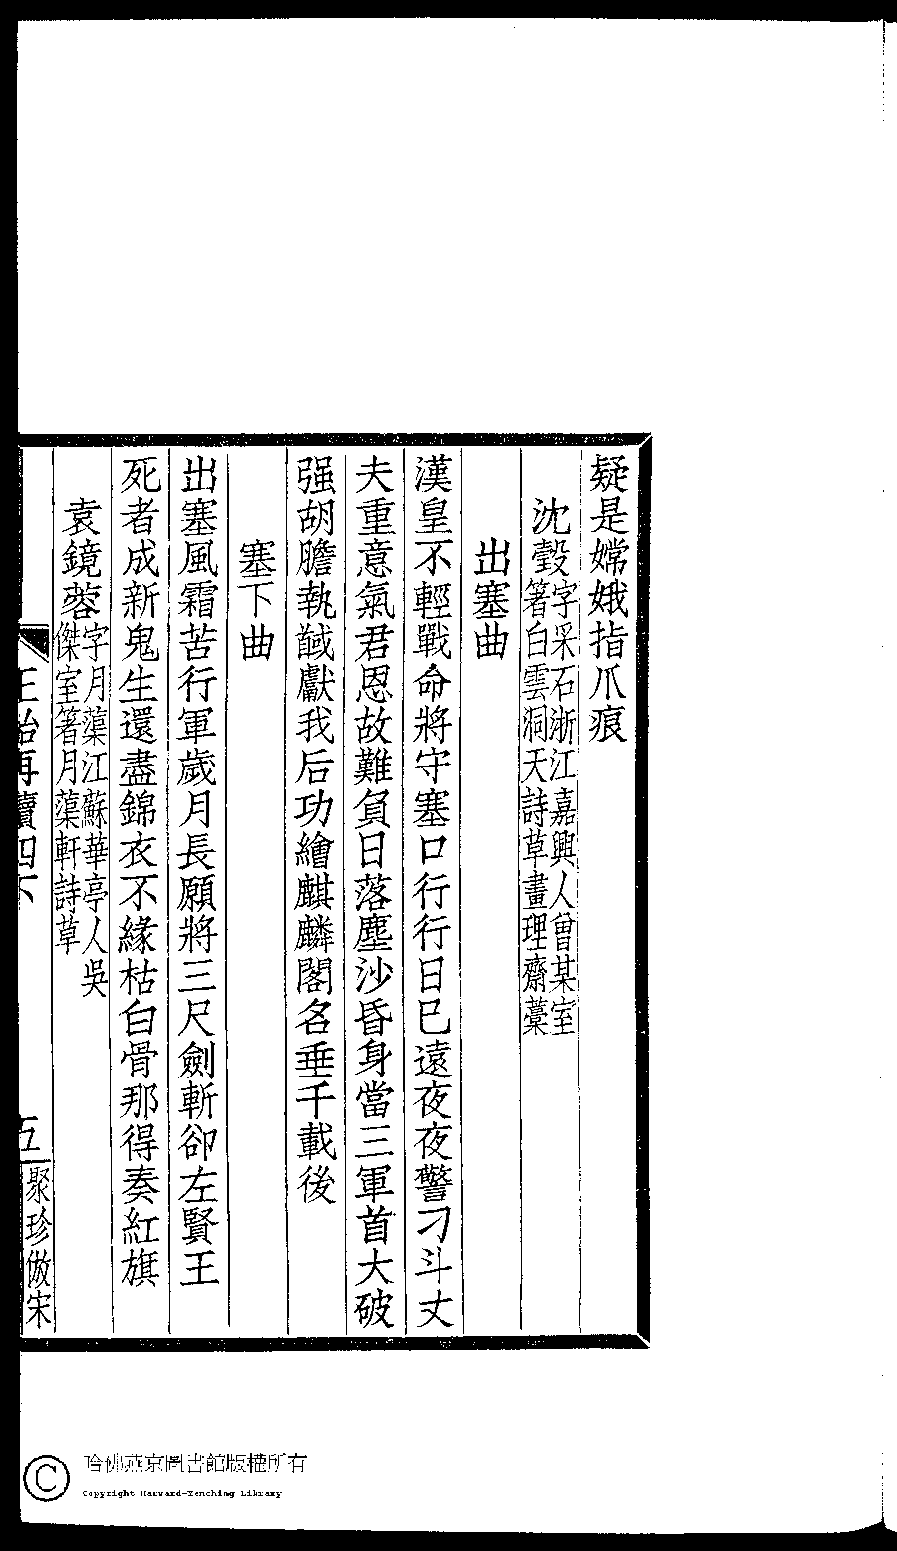 疑是嫦娥指爪痕
沈瑴字采石浙江嘉興人曾某室
箸白雲洞天詩草畫理齋藳
出塞曲
漢皇不輕戰命將守塞口行行日已遠夜夜警刁斗丈
夫重意氣君恩故難負日落塵沙昏身當三軍首大破
强胡膽執馘獻我后功繪麒麟閣名垂千載後
塞下曲
出塞風霜苦行軍歲月長願將三尺劍斬卻左賢王
死者成新鬼生還盡錦衣不緣枯白骨那得奏紅旗
袁鏡蓉字月蕖江蘇華亭人吳
傑室箸月蕖軒詩草
正始再續四下
五
聚珍倣宋
哈佛燕京圖書館版權所有
Copyright Harvard-Yenching Library